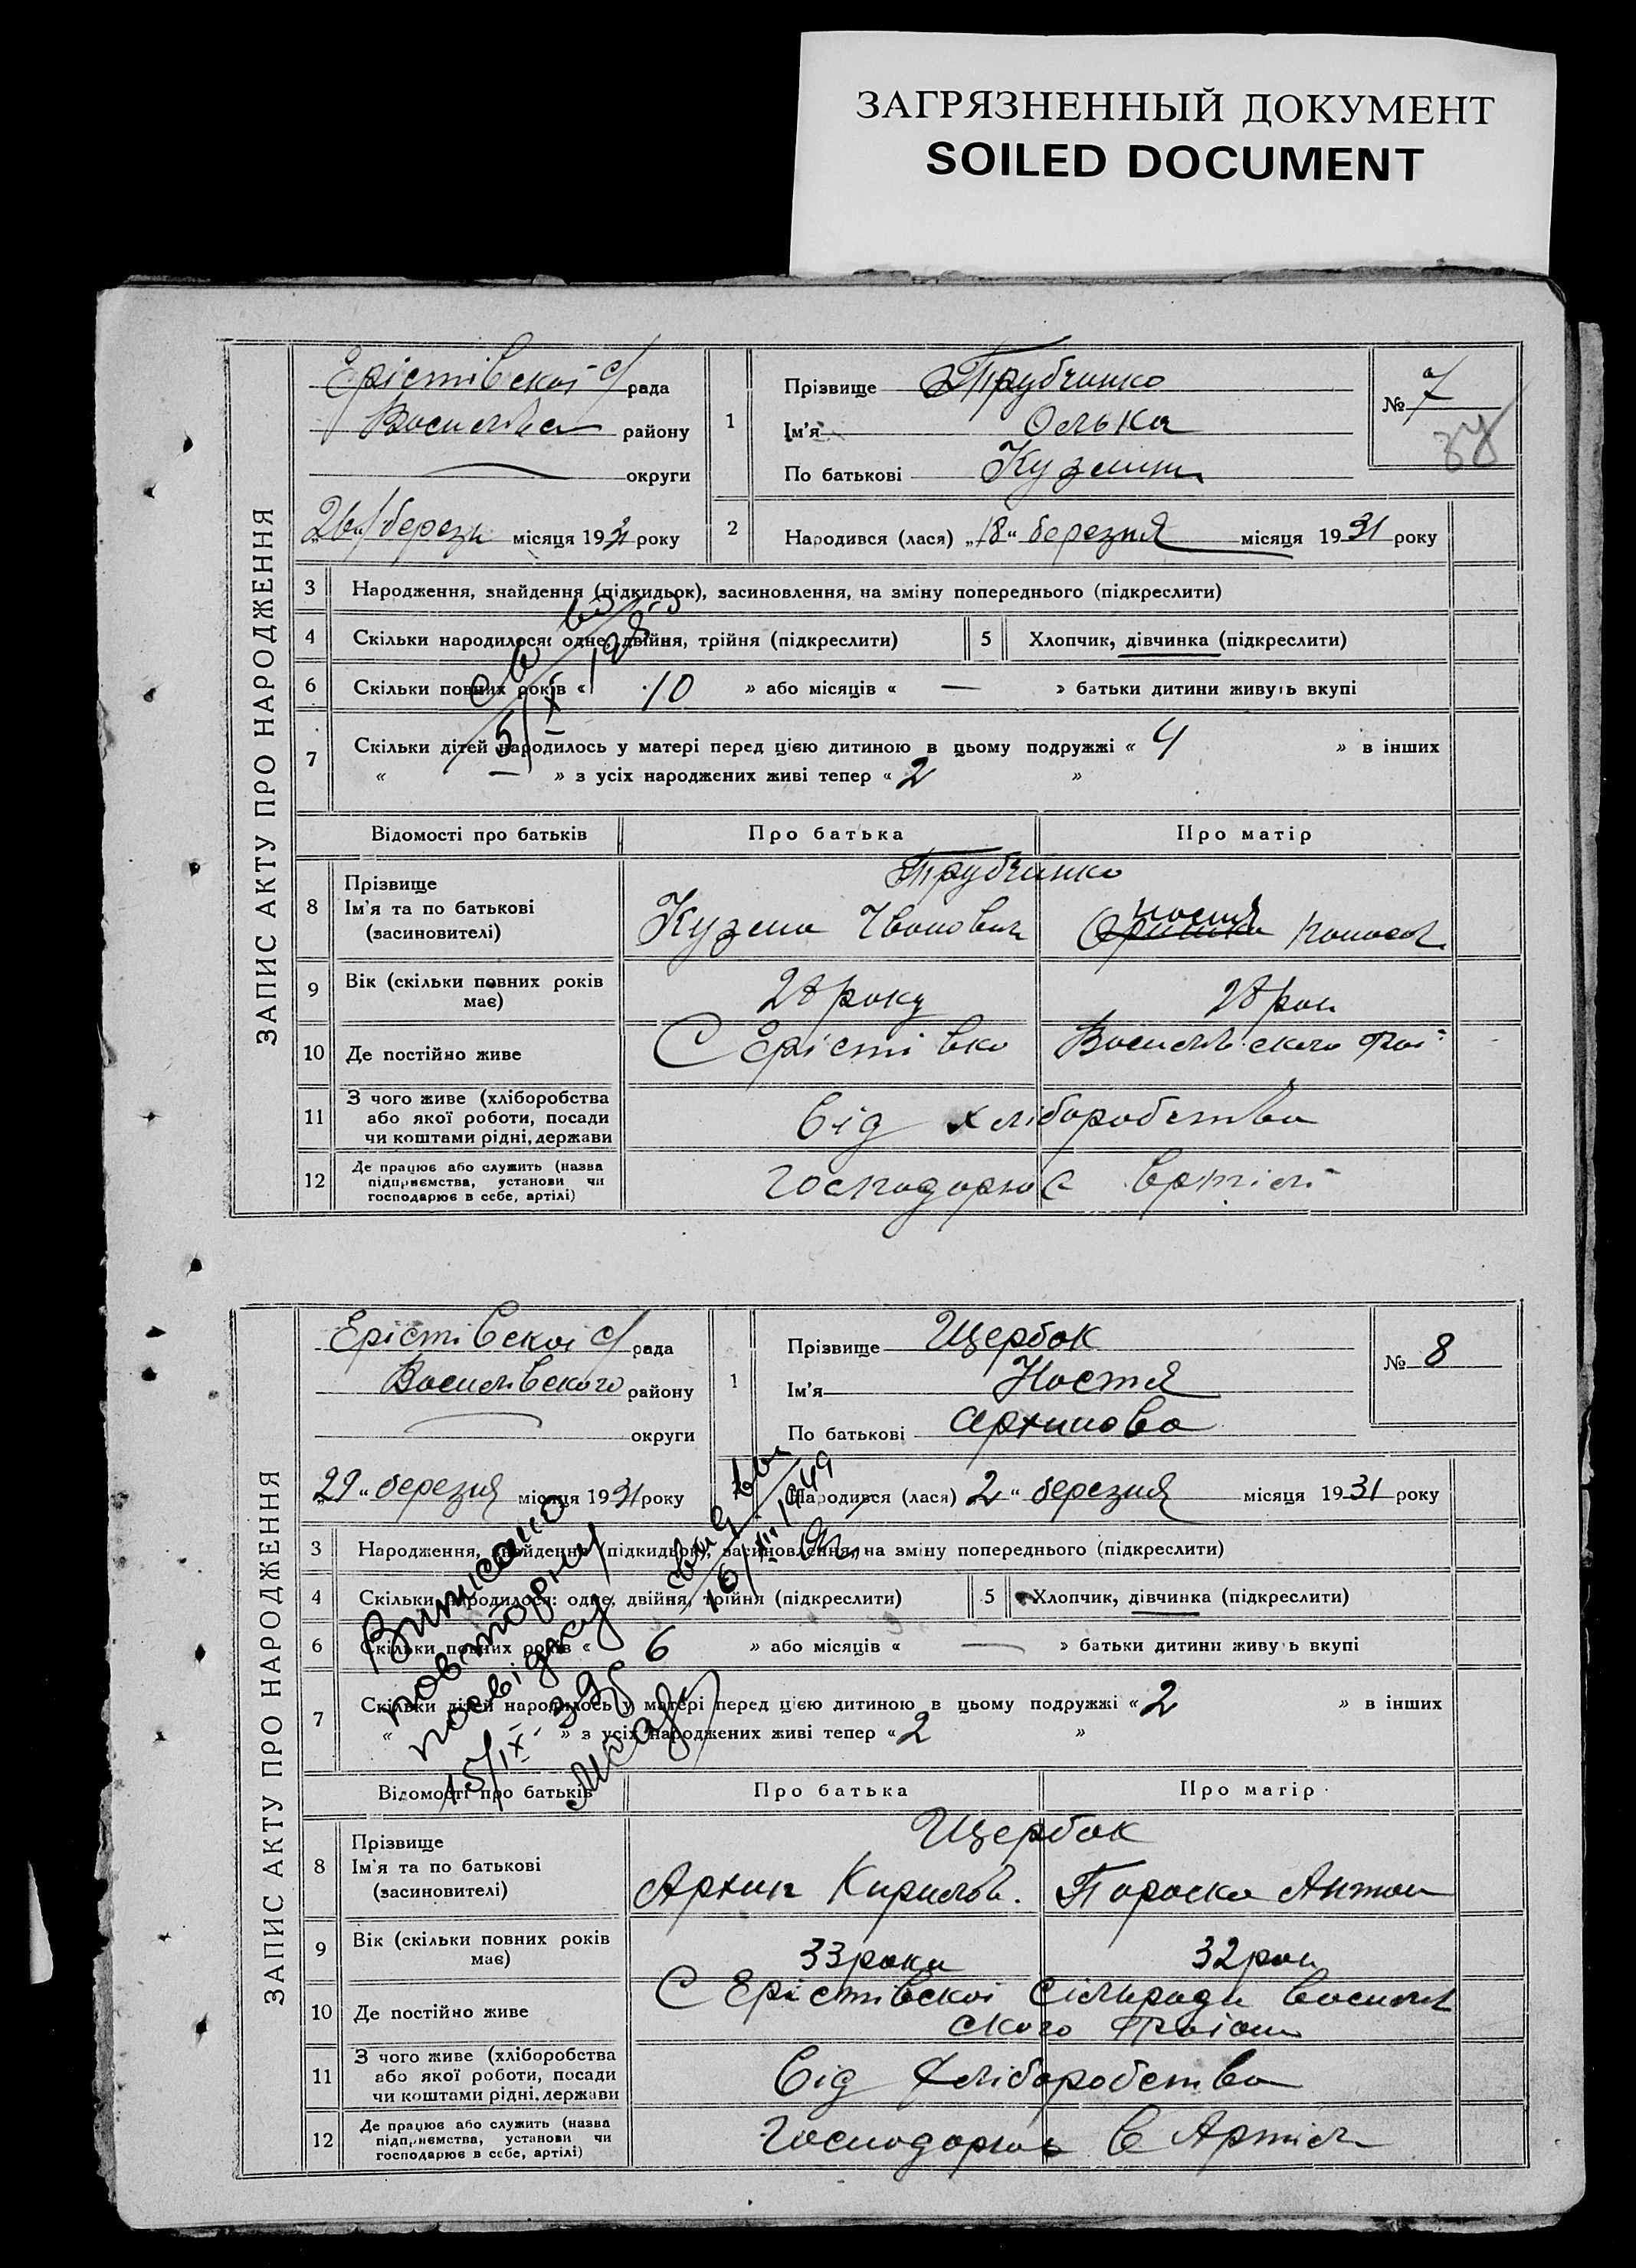 ЗАГРЯЗНЕННЫЙ ДОКУМЕНТ
SOILED DOCUMENT
ЗАПИС АКТУ ПРО НАРОДЖЕННЯ
Ерістівскоі с/рада
району
округи
місяця 1931 року
1
Прізвище Трубчинко
Ім'я Олька
По батькові
№ 7
2
Народився (лася) „18“ березня місяця 1931 року
3 Народження, знайдення (підкидьок), засиновлення, на зміну попереднього (підкреслити)
4 Скільки народилося: одне, двійня, трійня (підкреслити) 5 Хлопчик, дівчинка (підкреслити)
6 Скільки повних років « 10 » або місяців « — » батьки дитини живуть вкупі
7 Скільки дітей народилось у матері перед цією дитиною в цьому подружжі « 4 » в інших
« — » з усіх народжених живі тепер « 2 »
Відомості про батьків Про батька Про матір
8 Прізвище
Ім'я та по батькові
(засиновителі)
Трубчинко
Кузьма Іванович
9 Вік (скільки повних років
має)
28 року 28 рок
10 Де постійно живе С Ерістівка
11 З чого живе (хліборобства
або якої роботи, посади
чи коштами рідні, держави
Від хліборобства
12 Де працює або служить (назва
підприємства, установи чи
господарює в себе, артілі)
5/IX
ЗАПИС АКТУ ПРО НАРОДЖЕННЯ
Ерістівскоі с/рада
Василівского району
округи
„29“ березня місяця 1931 року
1
Прізвище Щербак
Ім'я Настя
По батькові Архипова
№ 8
Народився (лася) 2“ березня місяця 1931 року
3 Народження, знайдення (підкидьок), засиновлення, на зміну попереднього (підкреслити)
4 Скільки народилося: одне, двійня, трійня (підкреслити) 5 Хлопчик, дівчинка (підкреслити)
6 Скільки повних років « 6 » або місяців « — » батьки дитини живуть вкупі
7 Скільки дітей народилось у матері перед цією дитиною в цьому подружжі « 2 » в інших
« » з усіх народжених живі тепер « 2 »
Виписано
повторну
посвідку
15/IX-39р
16/III 1949
Відомості про батьків Про батька Про матір
8 Прізвище
Ім'я та по батькові
(засиновителі)
Щербак
Архип Кирилов. Параска Антон
9 Вік (скільки повних років
має)
33 роки 32 рок
10 Де постійно живе
С Ерістівскоі Сільради
ского
11 З чого живе (хліборобства
або якої роботи, посади
чи коштами рідні, держави
Від хліборобства
12 Де працює або служить (назва
підприємства, установи чи
господарює в себе, артілі)
Господарює в Артіл